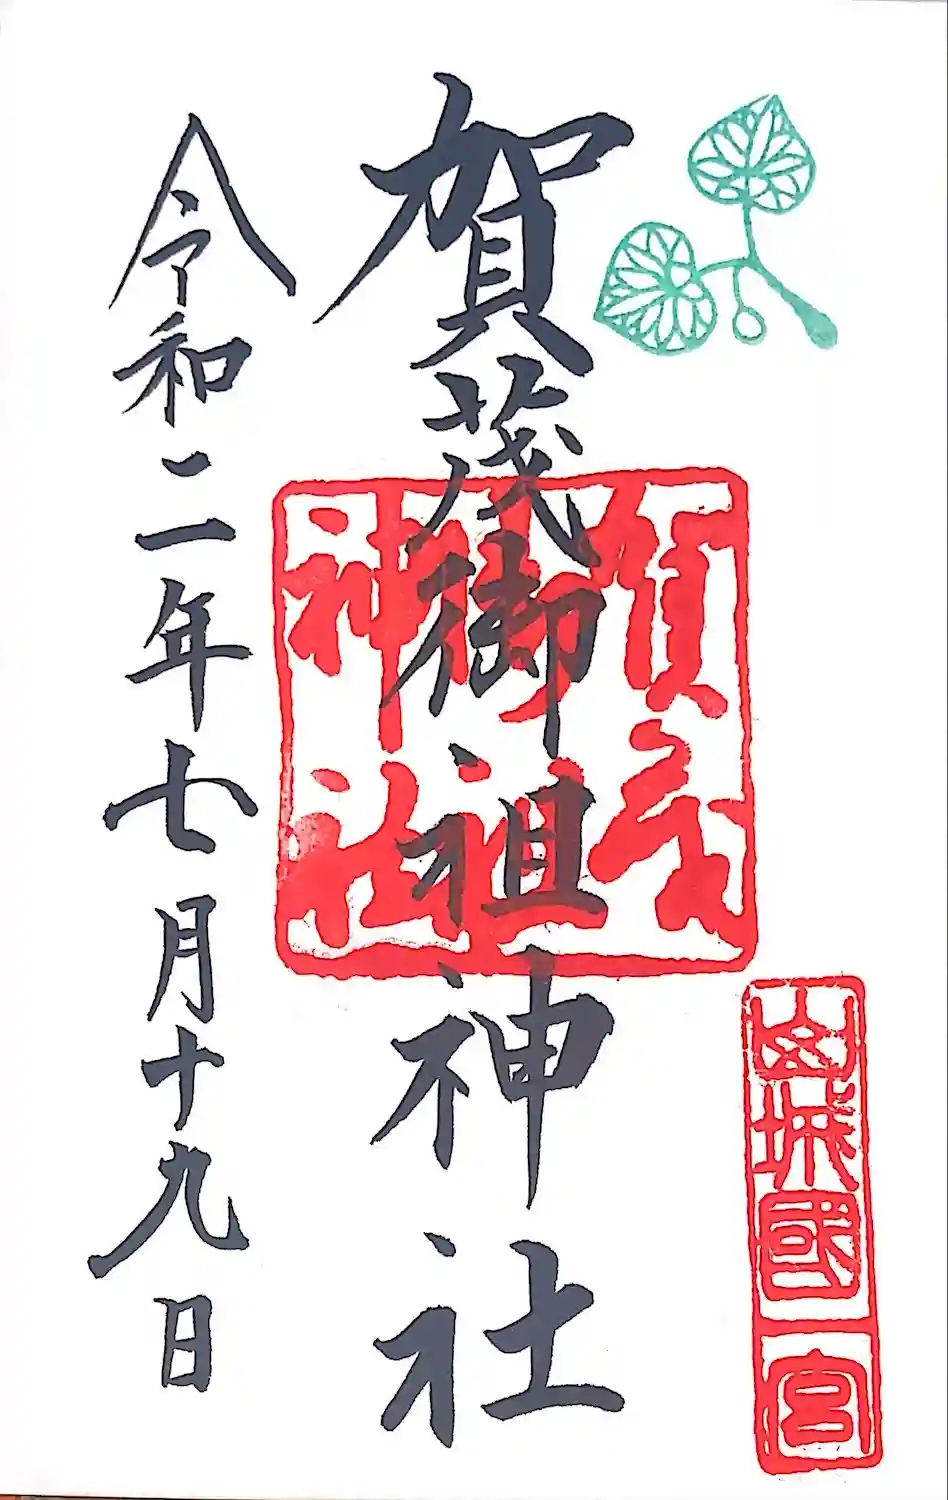 山城國一宮
賀茂御祖神社
賀茂
御祖
神社
令和二年七月十九日